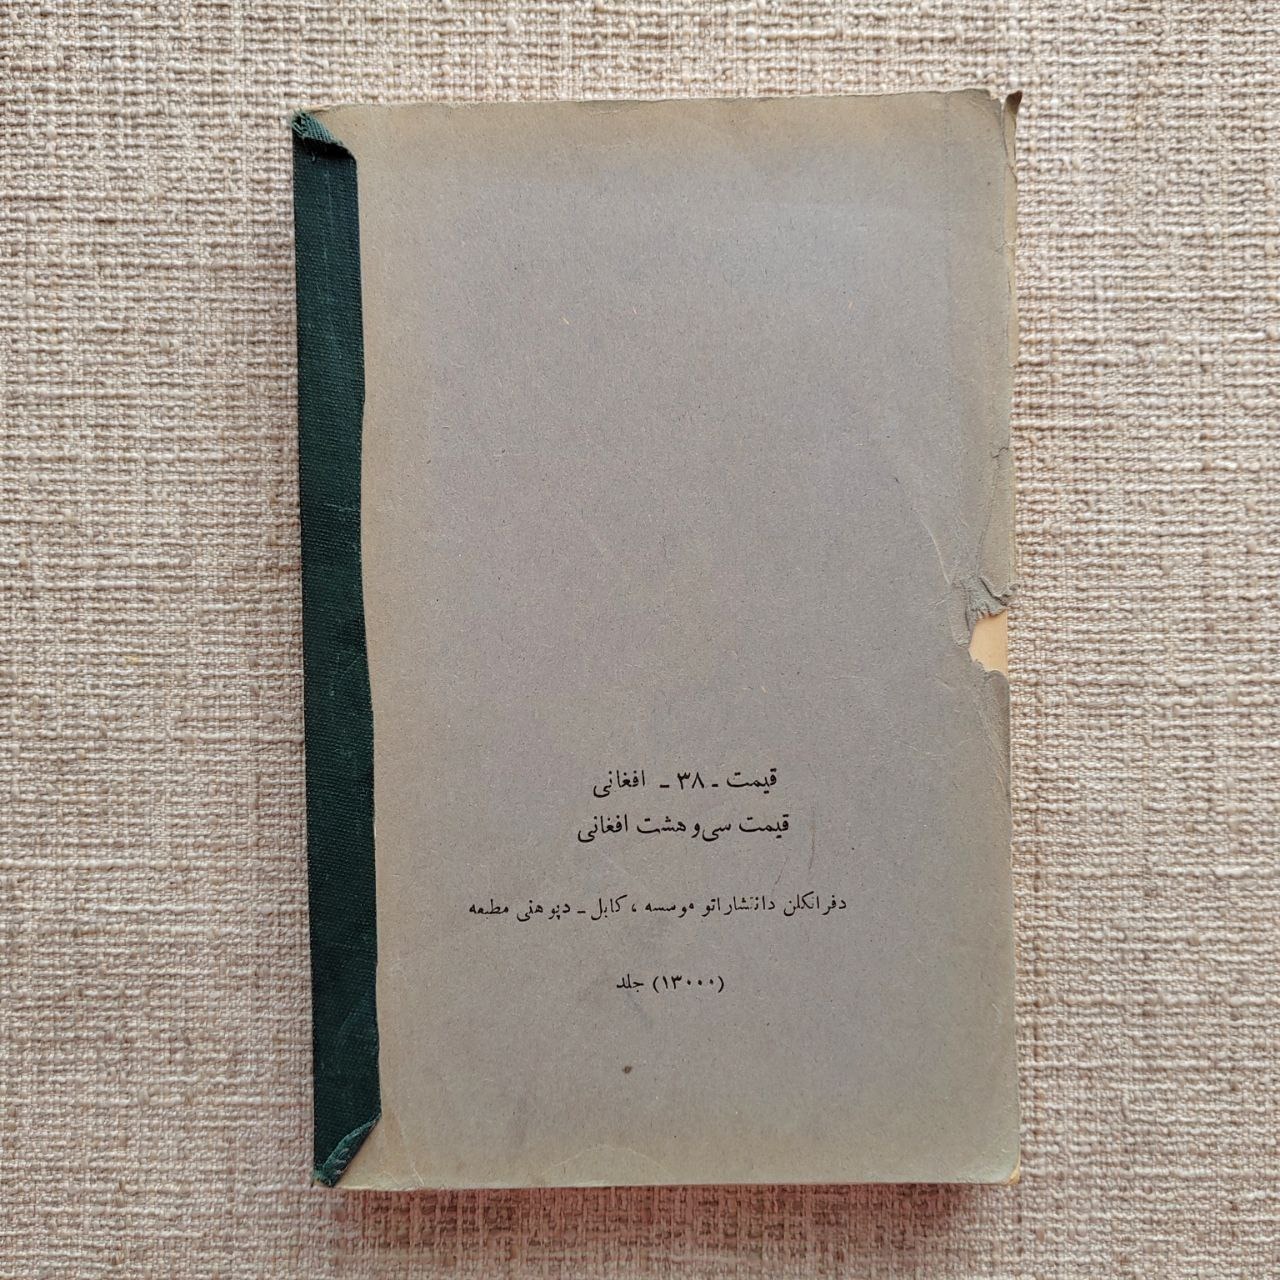 قیمت ـ ۳۸ ـ افغانی
قیمت سی و هشت افغانی
دفرانکلن دانتشاراتو موسسه ، کابل ـ دپوهنی مطبعه
(۱۳۰۰۰) جلد